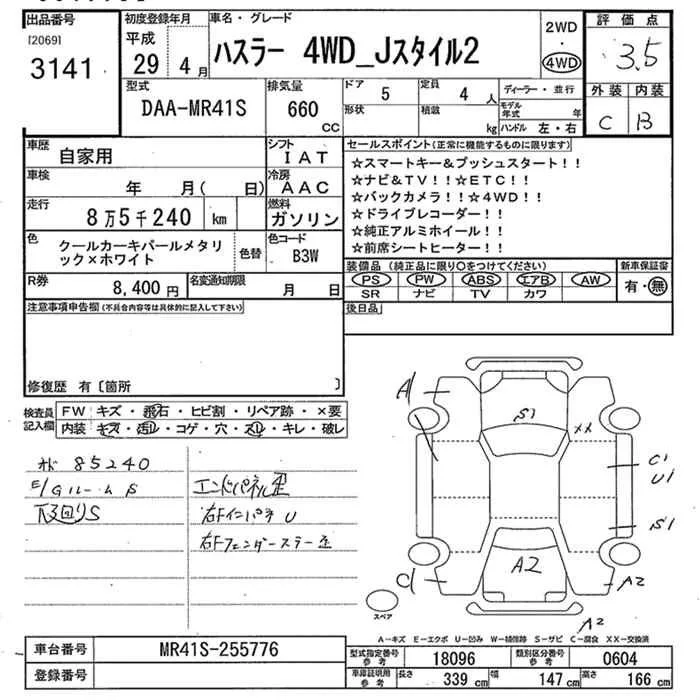 出品番号
[2069]
3141
初度登録年月
平成
29年4月
車名・グレード
ハスラー 4WD_Jスタイル2
2WD
・
4WD
評価点
3.5
外装 内装
C B
型式
DAA-MR41S
排気量
660
CC
ドア 5
形状
定員 4人
積載 kg
ディーラー・並行
モデル年式 年
ハンドル 左・右
車歴
自家用
シフト
IAT
車検 年 月( 日)
冷房
AAC
走行
8万5千240 km
燃料
ガソリン
色
クールカーキパールメタリ
ック×ホワイト
色替
色コード
B3W
R券
8,400円
名変通知期限
月 日
セールスポイント(正常に機能するものに限ります)
☆スマートキー&プッシュスタート!!
☆ナビ&TV!!☆ETC!!
☆バックカメラ!!☆4WD!!
☆ドライブレコーダー!!
☆純正アルミホイール!!
☆前席シートヒーター!!
装備品(純正品に限り○をつけてください)
PS PW ABS エアB AW
SR ナビ TV カワ
新車保証書
有・無
後日品
注意事項申告欄(不具合内容等は具体的に記入して下さい)
修復歴 有〔箇所 〕
検査員
記入欄
FW キズ・飛石・ヒビ割・リペア跡・×要
内装 キズ・汚レ・コゲ・穴・スレ・キレ・破レ
85240
下回りS
エンドパネル歪
右Fインパネ U
右Fフェンダーステー歪
A1
S1
XX
C1
U1
S1
C1
A2
A2
A2
スペア
A−キズ E−エクボ U−凹み W−補修跡 S−サビ C−腐食 XX−交換済
車台番号
MR41S-255776
登録番号
型式指定番号
参考
18096
類別区分番号
参考
0604
車庫証明用
参考
長さ 339 cm
幅 147 cm
高さ 166 cm